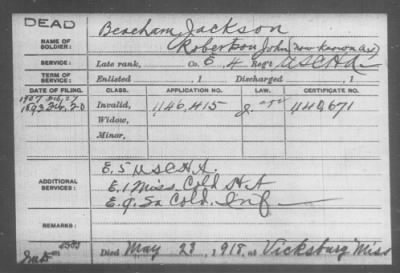 DEAD
Beacham, Jackson
NAME OF SOLDIER: Roberson, John (now known as)
SERVICE: Late rank, Co. E, 4 Reg't U.S.C.H.A.
TERM OF SERVICE: Enlisted , 1 Discharged , 1
DATE OF FILING. CLASS. APPLICATION NO. LAW. CERTIFICATE NO.
1907
1893 20 Invalid, 1146,415
Widow,
Minor,
ADDITIONAL SERVICES: E. 5 U.S.C.H.A.
E. 1 Miss. Cold H.A
E. 9. La Cold. Inf
REMARKS:
Died May 23, 1918, at Vicksburg Miss